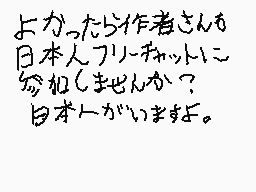 よかったら作者さんも
日本人フリーチャットに
参加しませんか？
日本人がいますよ。